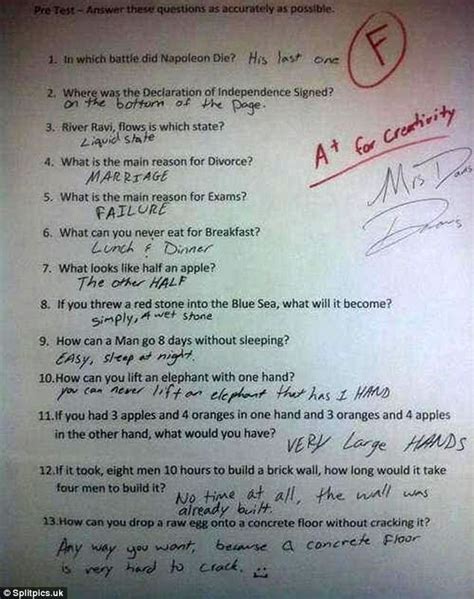 Pre Test – Answer these questions as accurately as possible.
F
1. In which battle did Napoleon Die? His last one
2. Where was the Declaration of Independence Signed?
on the bottom of the page.
A+ for Creativity
3. River Ravi, flows is which state?
Liquid state
4. What is the main reason for Divorce?
MARRIAGE
Mrs
5. What is the main reason for Exams?
FAILURE
6. What can you never eat for Breakfast?
Lunch & Dinner
7. What looks like half an apple?
The other HALF
8. If you threw a red stone into the Blue Sea, what will it become?
simply, A wet stone
9. How can a Man go 8 days without sleeping?
EASy, sleep at night.
10.How can you lift an elephant with one hand?
you can never lift an elephant that has 1 HAND
11.If you had 3 apples and 4 oranges in one hand and 3 oranges and 4 apples
in the other hand, what would you have?
VERY Large HANDS
12.If it took, eight men 10 hours to build a brick wall, how long would it take
four men to build it?
No time at all, the wall was
already built.
13.How can you drop a raw egg onto a concrete floor without cracking it?
Any way you want, because a concrete floor
is very hard to crack.
© Splitpics.uk